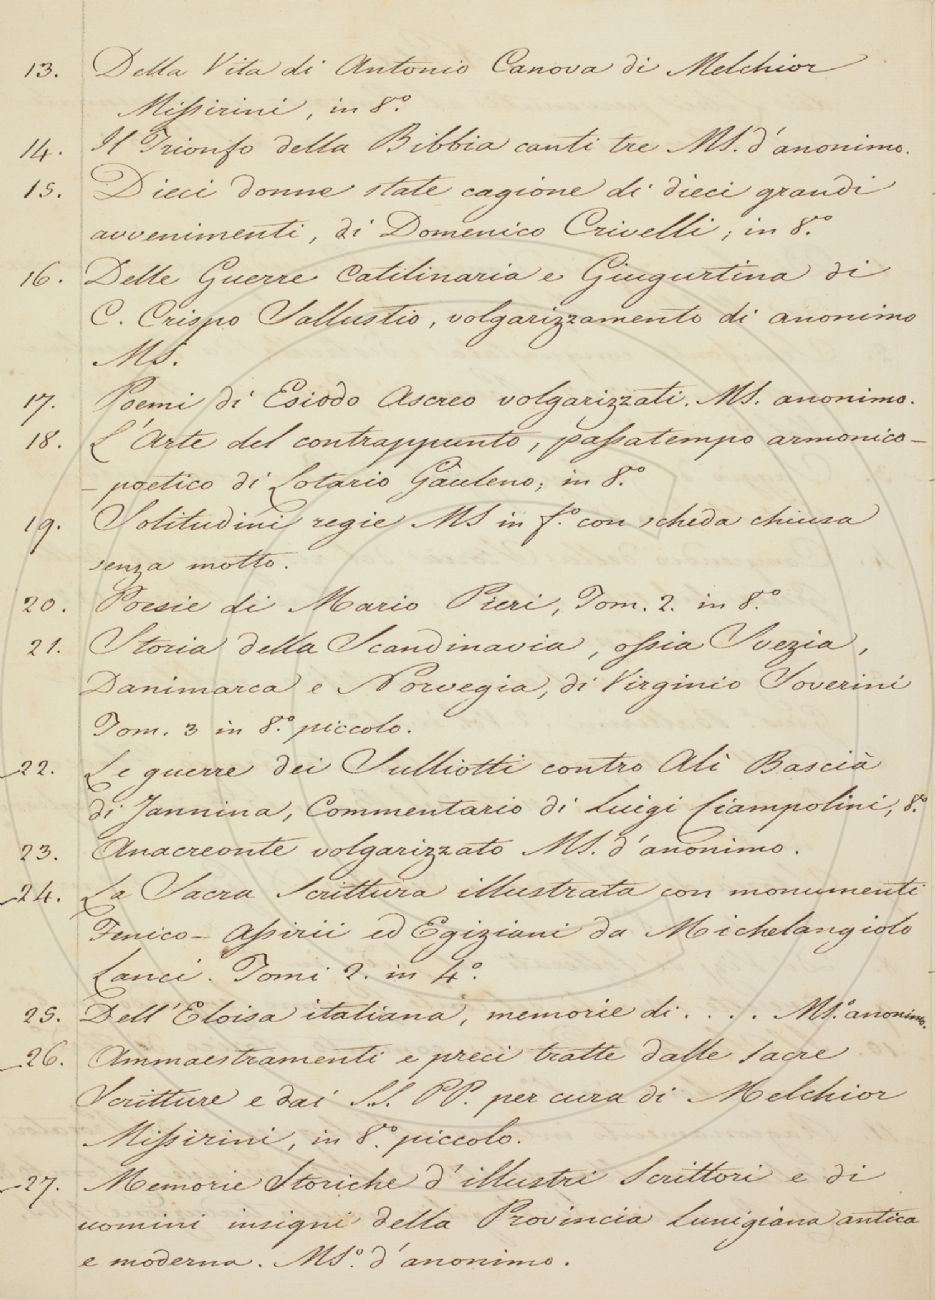 13. Della Vita di Antonio Canova di Melchior
Missirini, in 8.°
14. Il Trionfo della Bibbia canti tre MS. d'anonimo.
15. Dieci donne state cagione di dieci grandi
avvenimenti, di Domenico Crivelli; in 8.°
16. Delle Guerre Catilinaria e Giugurtina di
C. Crispo Sallustio, volgarizzamento di anonimo
MS.
17. Poemi di Esiodo Ascreo volgarizzati. MS. anonimo.
18. L'Arte del contrappunto, passatempo armonico-
-poetico di Lotario Gauleno; in 8.°
19. Solitudini regie MS in f.° con scheda chiusa
senza motto.
20. Poesie di Mario Pieri, Tom. 2. in 8.°
21. Storia della Scandinavia, ossia Svezia,
Danimarca e Norvegia, di Virginio Soverini
Tom. 3 in 8.° piccolo.
22. Le guerre dei Sulliotti contro Alì Bascià
di Jannina, Commentario di Luigi Ciampolini, 8.°
23. Anacreonte volgarizzato MS. d'anonimo.
24. La Sacra Scrittura illustrata con monumenti
Fenico-Assirii ed Egiziani da Michelangiolo
Lanci. Tomi 2. in 4.°
25. Dell'Eloisa italiana, memorie di.... MS.° anonimo.
26. Ammaestramenti e preci tratte dalle sacre
Scritture e dai S.S. PP. per cura di Melchior
Missirini, in 8.° piccolo.
27. Memorie Storiche d'illustri Scrittori e di
uomini insigni della Provincia Lunigiana antica
e moderna. MS.° d'anonimo.